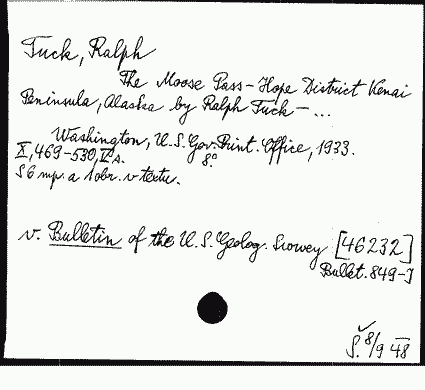 Tuck, Ralph
The Moose Pass-Hope District Kenai
Peninsula, Alaska by Ralph Tuck - ...
Washington, U.S. Gov. Print. Office, 1933.
8°
X, 469-530, V s.
S 6 mp. a 1 obr. v textu.
v. Bulletin of the U.S. Geolog. Survey [46232]
Bullet. 849-I
S. 8/9 48